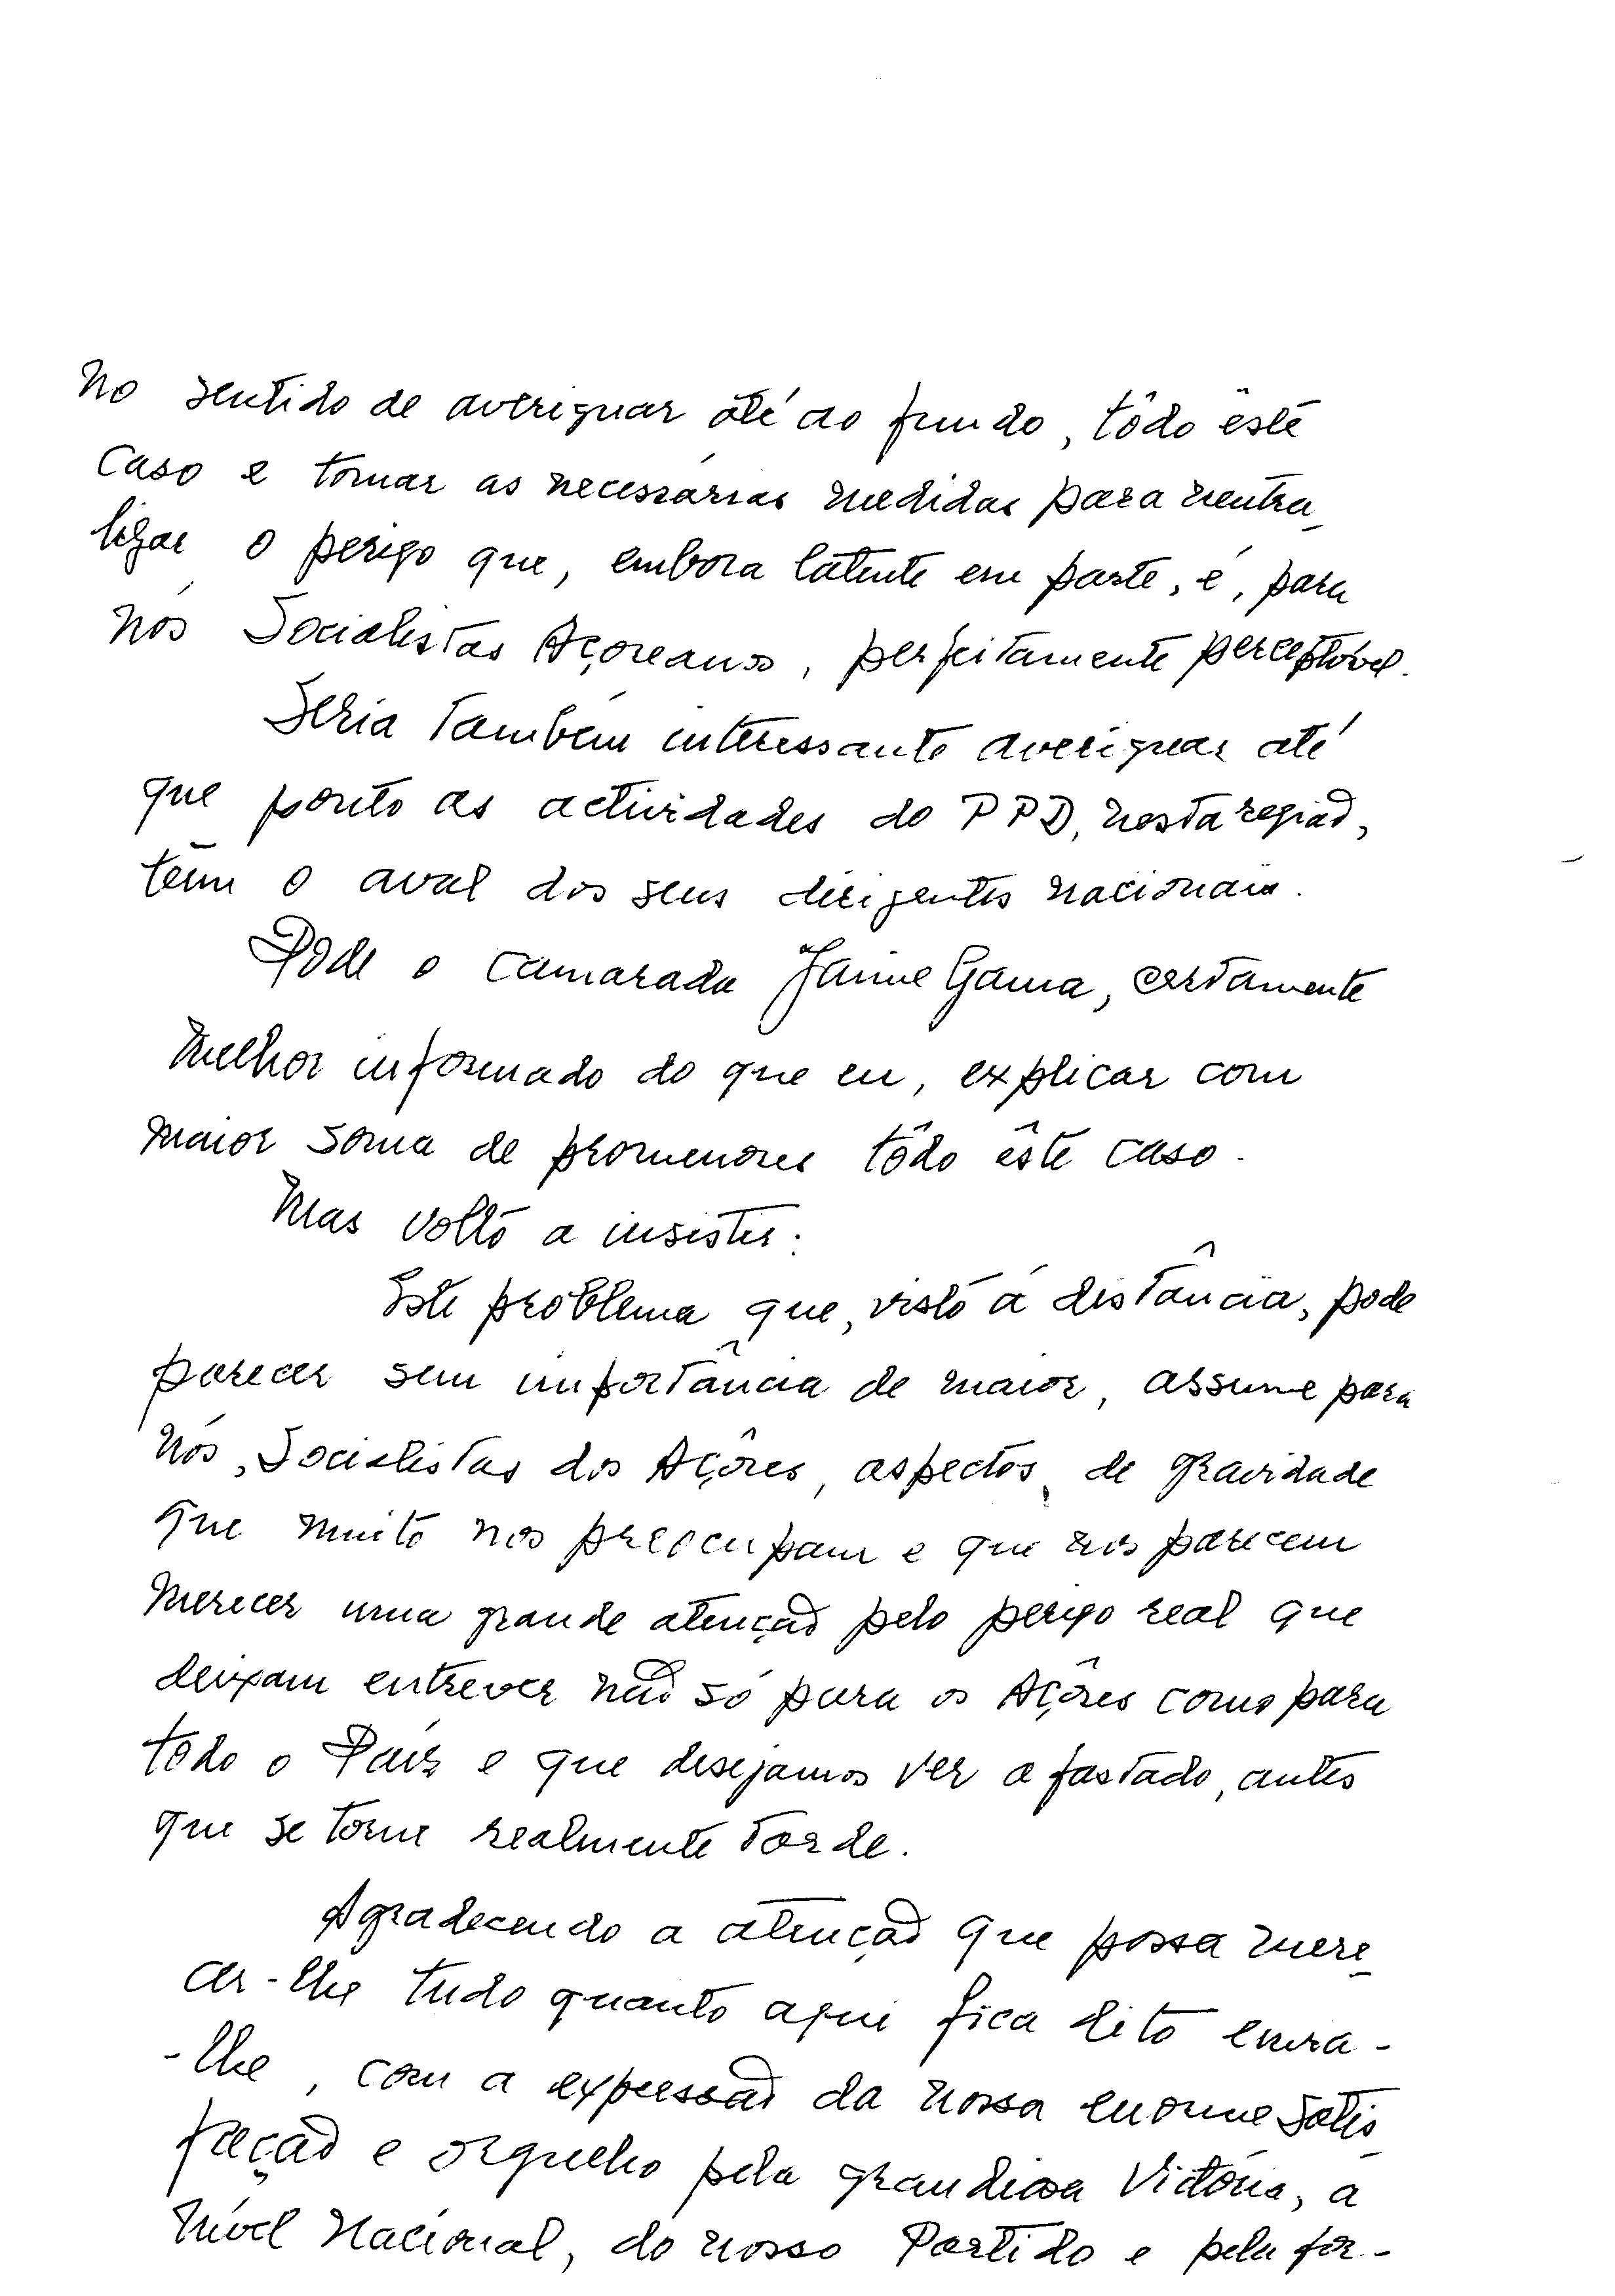 No sentido de averiguar até ao fundo, tôdo êste
caso e tomar as necessárias medidas para neutra_
lizar o perigo que, embora latente em parte, é, para
nós Socialistas Açoreanos, perfeitamente perceptível.
Seria também interessante averiguar até
que ponto as actividades do PPD, nesta região,
têm o aval dos seus dirigentes nacionais.
Pode o camarada Jaime Gama, certamente
melhor informado do que eu, explicar com
maior soma de promenores tôdo êste caso.
Mas volto a insistir:
Este problema que, visto á distância, pode
parecer sem importância de maior, assume para
nós, Socialistas dos Açôres, aspectos de gravidade
que muito nos preocupam e que nos parecem
merecer uma grande atenção pelo perigo real que
deixam entrever não só para os Açôres como para
todo o Paíz e que desejamos ver afastado, antes
que se torne realmente tarde.
Agradecendo a atenção que possa mere_
cer-lhe tudo quanto aqui fica dito envia-
-lhe, com a expressão da nossa enorme satis_
fação e orgulho pela grandiosa Victória, a
nível Nacional, do nosso Partido e pela for-